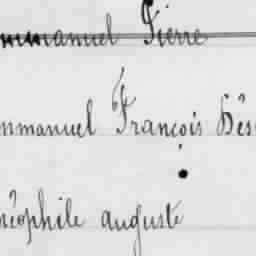 mmanuel Pierre
mmanuel François Dés
néophile auguste